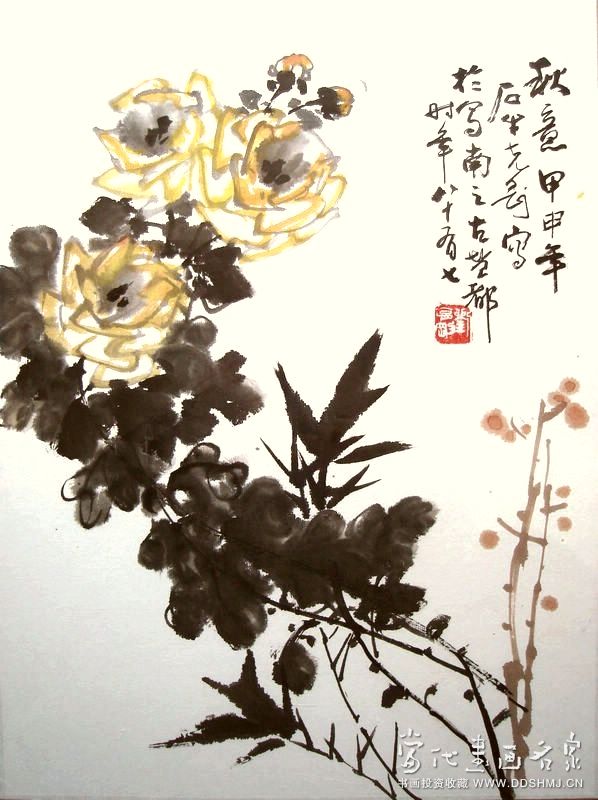 秋意甲申年
写
於南之古楚都
时年八十有七
當代書画名家
书画投资收藏 WWW.DDSHMJ.CN